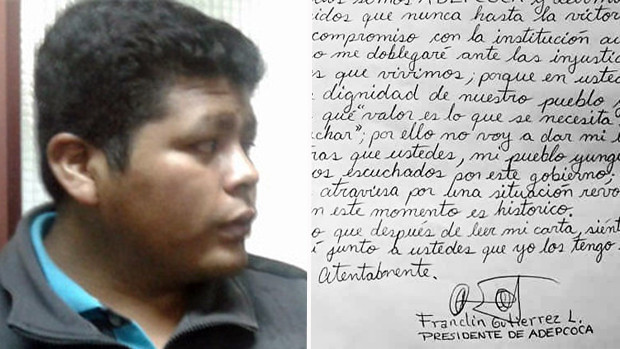 somos ADEPCOCA y
idos que nunca hasta la victor
compromiso con la institución au
o me doblegaré ante las injustic
s que vivimos; porque en usted
dignidad de nuestro pueblo
qué "valor es lo que se necesita
char"; por ello no voy a dar mi
ras que ustedes, mi pueblo yungu
os escuchados por este gobierno;
atraviesa por una situación revo
n este momento es histórico.
o que después de leer mi carta, sient
í junto a ustedes que yo los tengo
Atentamente.
Franclin Gutierrez L.
PRESIDENTE DE ADEPCOCA